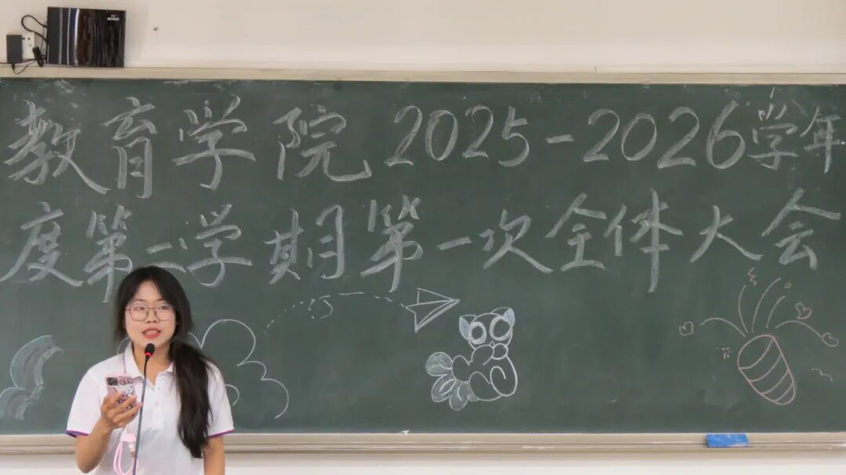 教育学院2025-2026学年
度第二学期第一次全体大会